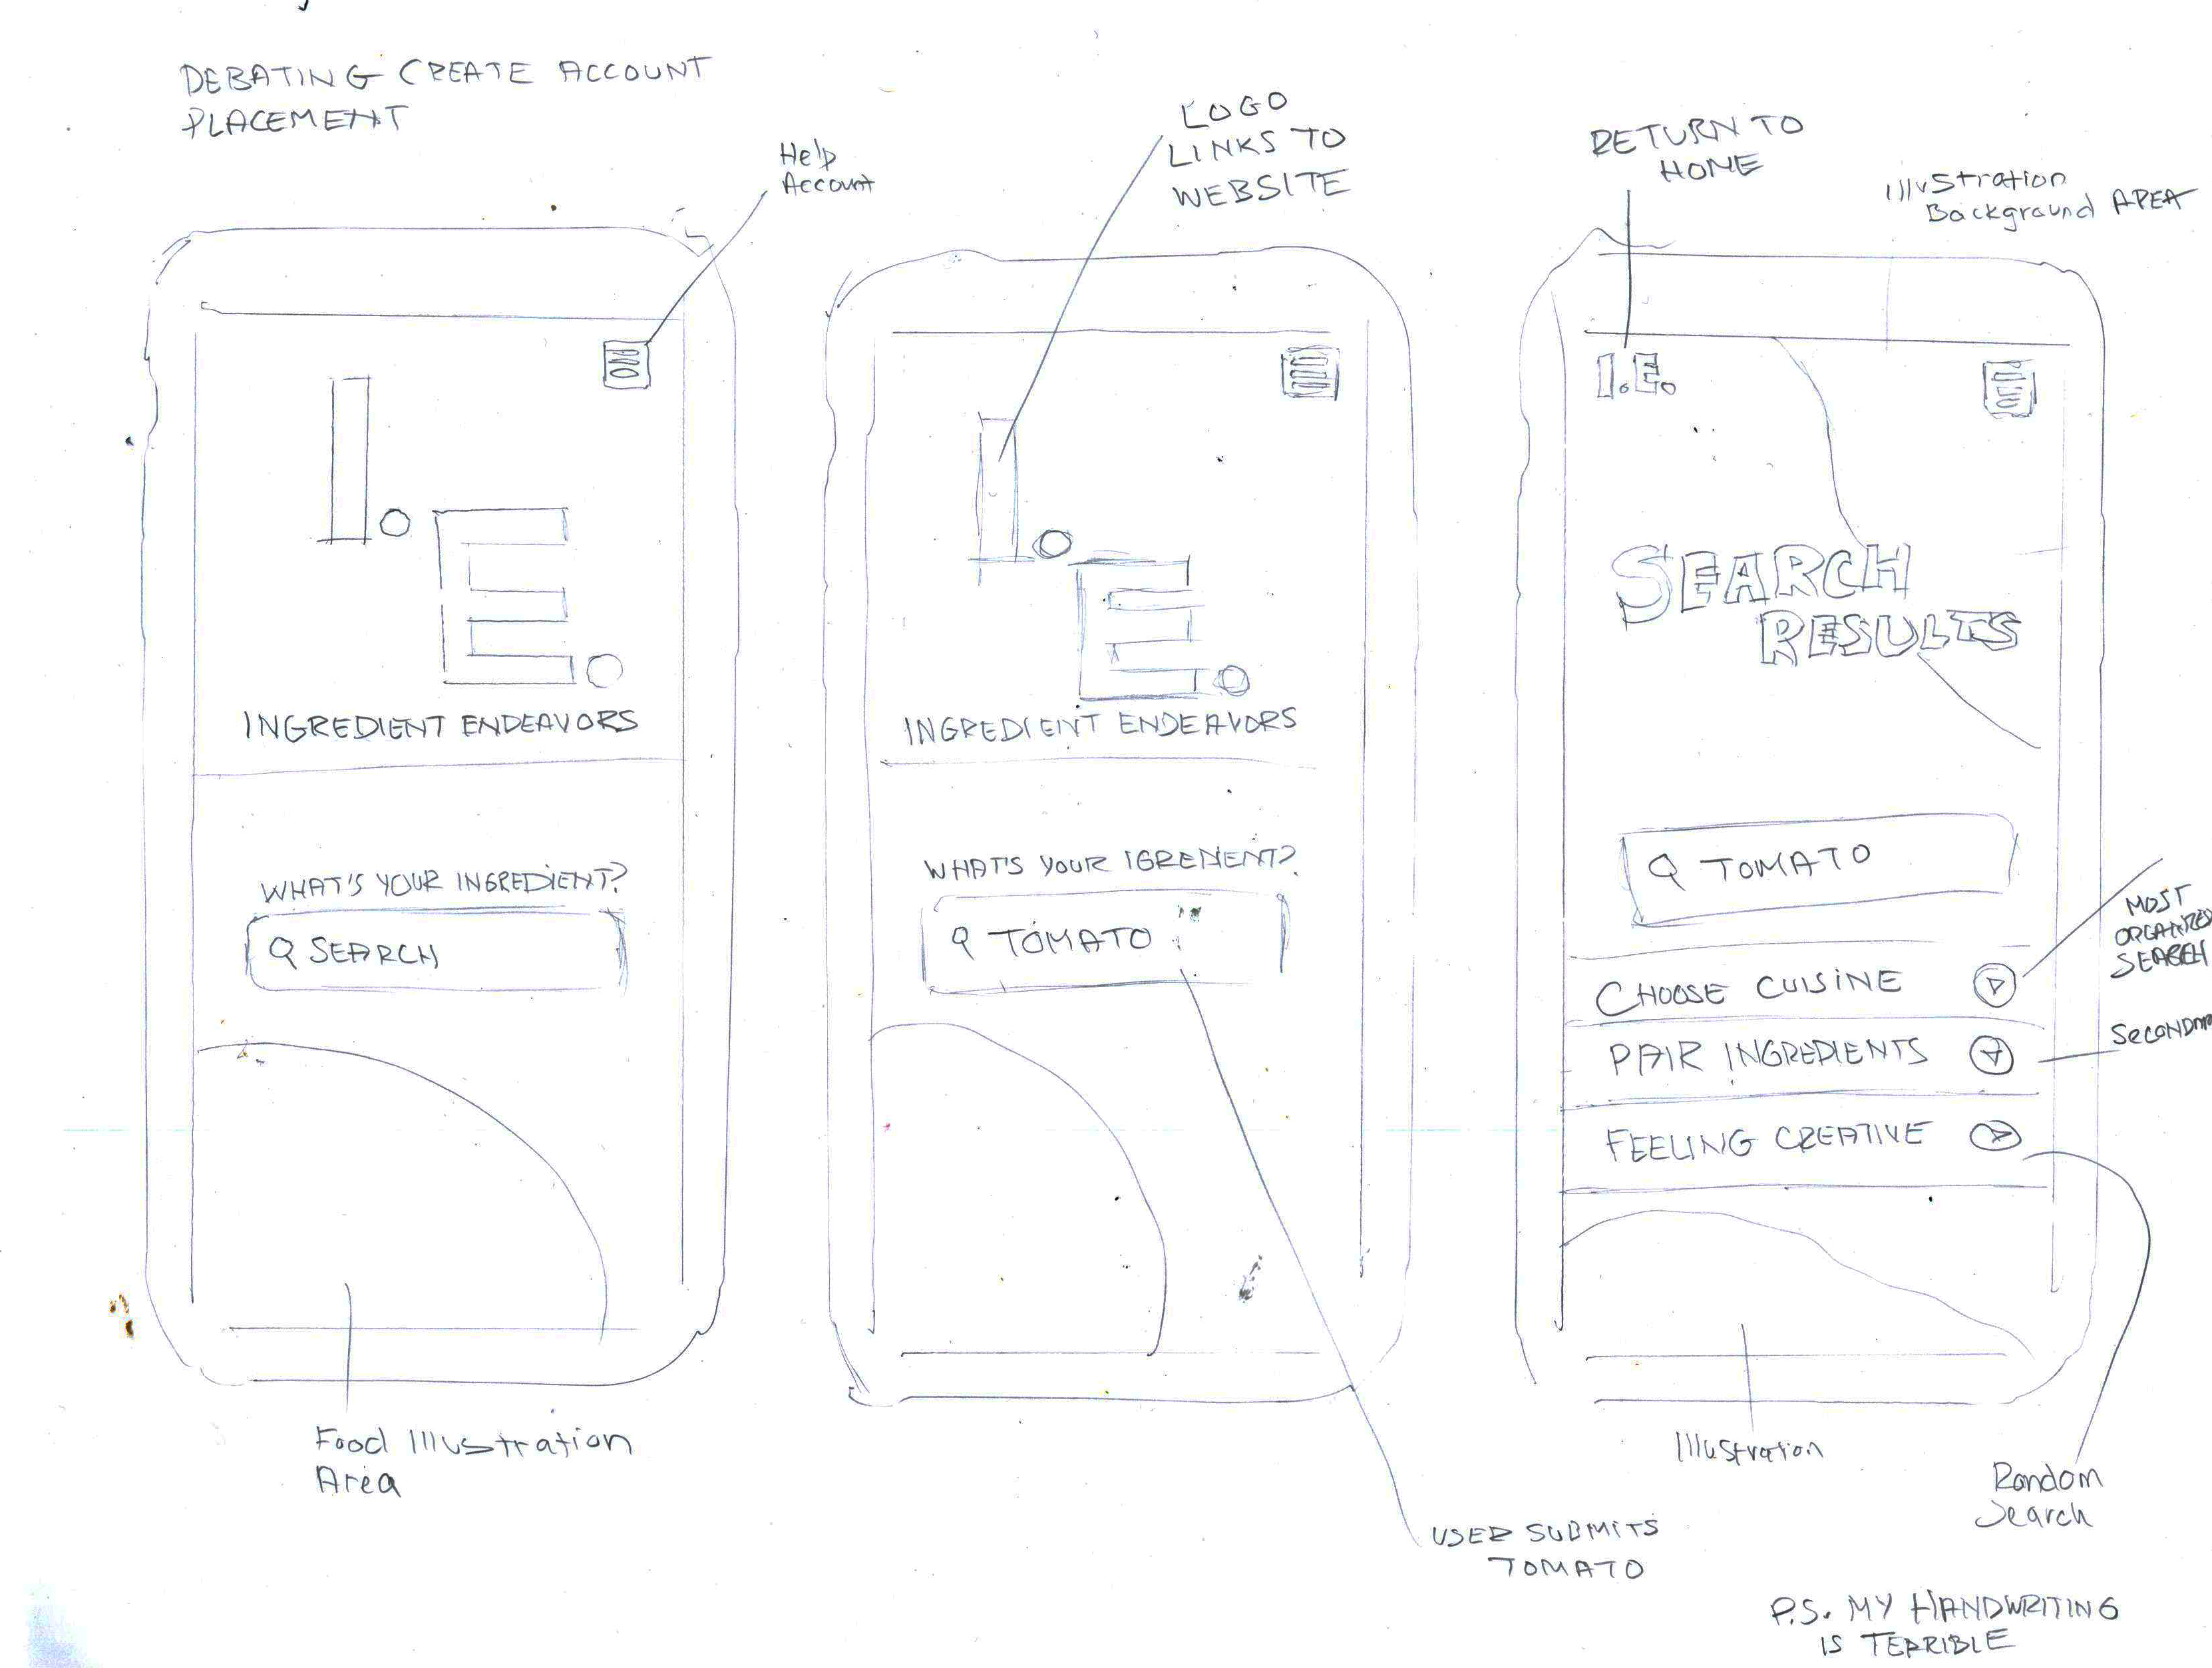 DEBATING CREATE ACCOUNT
PLACEMENT
Help
Account
I.
E.
INGREDIENT ENDEAVORS
WHAT'S YOUR INGREDIENT?
SEARCH
Food Illustration
Area
LOGO
LINKS TO
WEBSITE
I.
E.
INGREDIENT ENDEAVORS
WHAT'S YOUR IGREDIENT?
TOMATO
USER SUBMITS
TOMATO
RETURN TO
HOME
Illustration
Background AREA
I.E.
SEARCH
RESULTS
TOMATO
CHOOSE CUISINE
MOST
ORGANIZED
SEARCH
PAIR INGREDIENTS
FEELING CREATIVE
Illustration
Random
Search
P.S. MY HANDWRITING
IS TERRIBLE